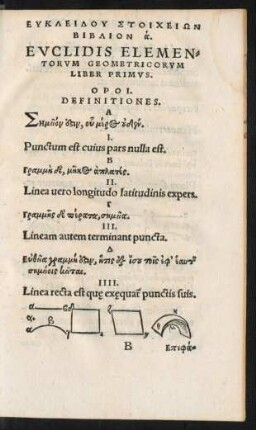 ΕΥΚΛΕΙΔΟΥ ΣΤΟΙΧΕΙΩΝ
ΒΙΒΛΙΟΝ ά.
EVCLIDIS ELEMEN-
TORVM GEOMETRICORVM
LIBER PRIMVS.
ΟΡΟΙ.
DEFINITIONES.
Α
Σημεῖόν ἐστιν, οὗ μέρος οὐθέν.
I.
Punctum est cuius pars nulla est.
Β
Γραμμὴ δὲ, μῆκος ἀπλατές.
II.
Linea uero longitudo latitudinis expers.
Γ
Γραμμῆς δὲ πέρατα, σημεῖα.
III.
Lineam autem terminant puncta.
Δ
Εὐθεῖα γραμμή ἐστιν, ἥτις ἐξ ἴσου τοῖς ἐφ' ἑαυτῆς
σημείοις κεῖται.
IIII.
Linea recta est quę exęquat punctis suis.
α
α
B
Επιφά-